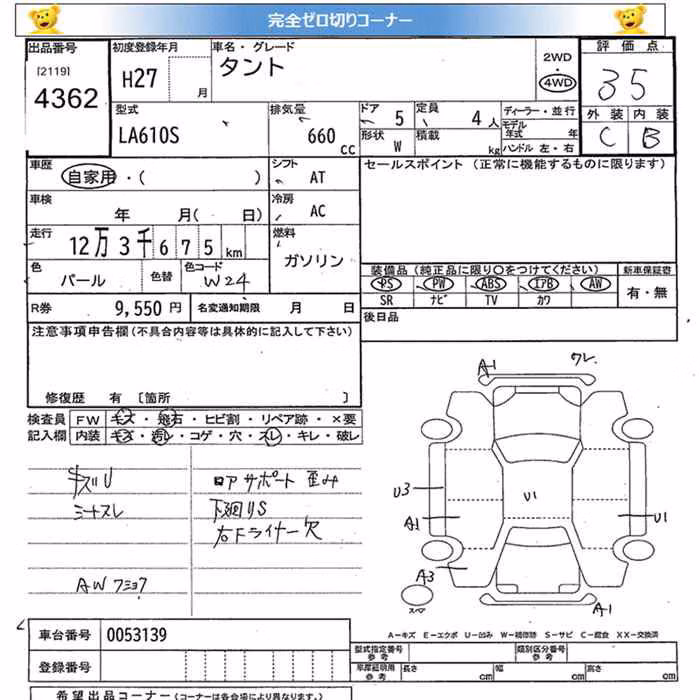 完全ゼロ切りコーナー
出品番号
[2119]
4362
初度登録年月
H27
月
車名・グレード
タント
2WD
・
4WD
評価点
35
外装 内装
C B
型式
LA610S
排気量
660
cc
ドア 5
定員 4人
形状 W
積載 kg
ディーラー・並行
モデル年式 年
ハンドル 左・右
車歴
自家用・( )
シフト
AT
車検
年 月( 日)
冷房
AC
走行
12万3千675km
燃料
ガソリン
色
パール
色替
色コード
W24
R券 9,550円
名変通知期限 月 日
セールスポイント (正常に機能するものに限ります)
装備品 (純正品に限り〇をつけてください)
PS PW ABS IアB AW
SR ナビ TV カワ
新車保証書
有・無
後日品
注意事項申告欄(不具合内容等は具体的に記入して下さい)
修復歴 有 〔箇所 〕
検査員
記入欄
FW キズ・飛石・ヒビ割・リペア跡・×要
内装 キズ・汚レ・コゲ・穴・スレ・キレ・破レ
キズU
シートスレ
AWフショク
ロアサポート 歪み
下廻りS
右Fライナー欠
A1
ワレ
U3
A1
U1
U1
A3
A1
スペア
A-キズ E-エクボ U-凹み W-補修跡 S-サビ C-腐食 XX-交換済
車台番号 0053139
登録番号
型式指定番号
参考
類別区分番号
参考
車庫証明用
参考
長さ cm
幅 cm
高さ cm
希望出品コーナー(コーナーは各会場により異なります。)